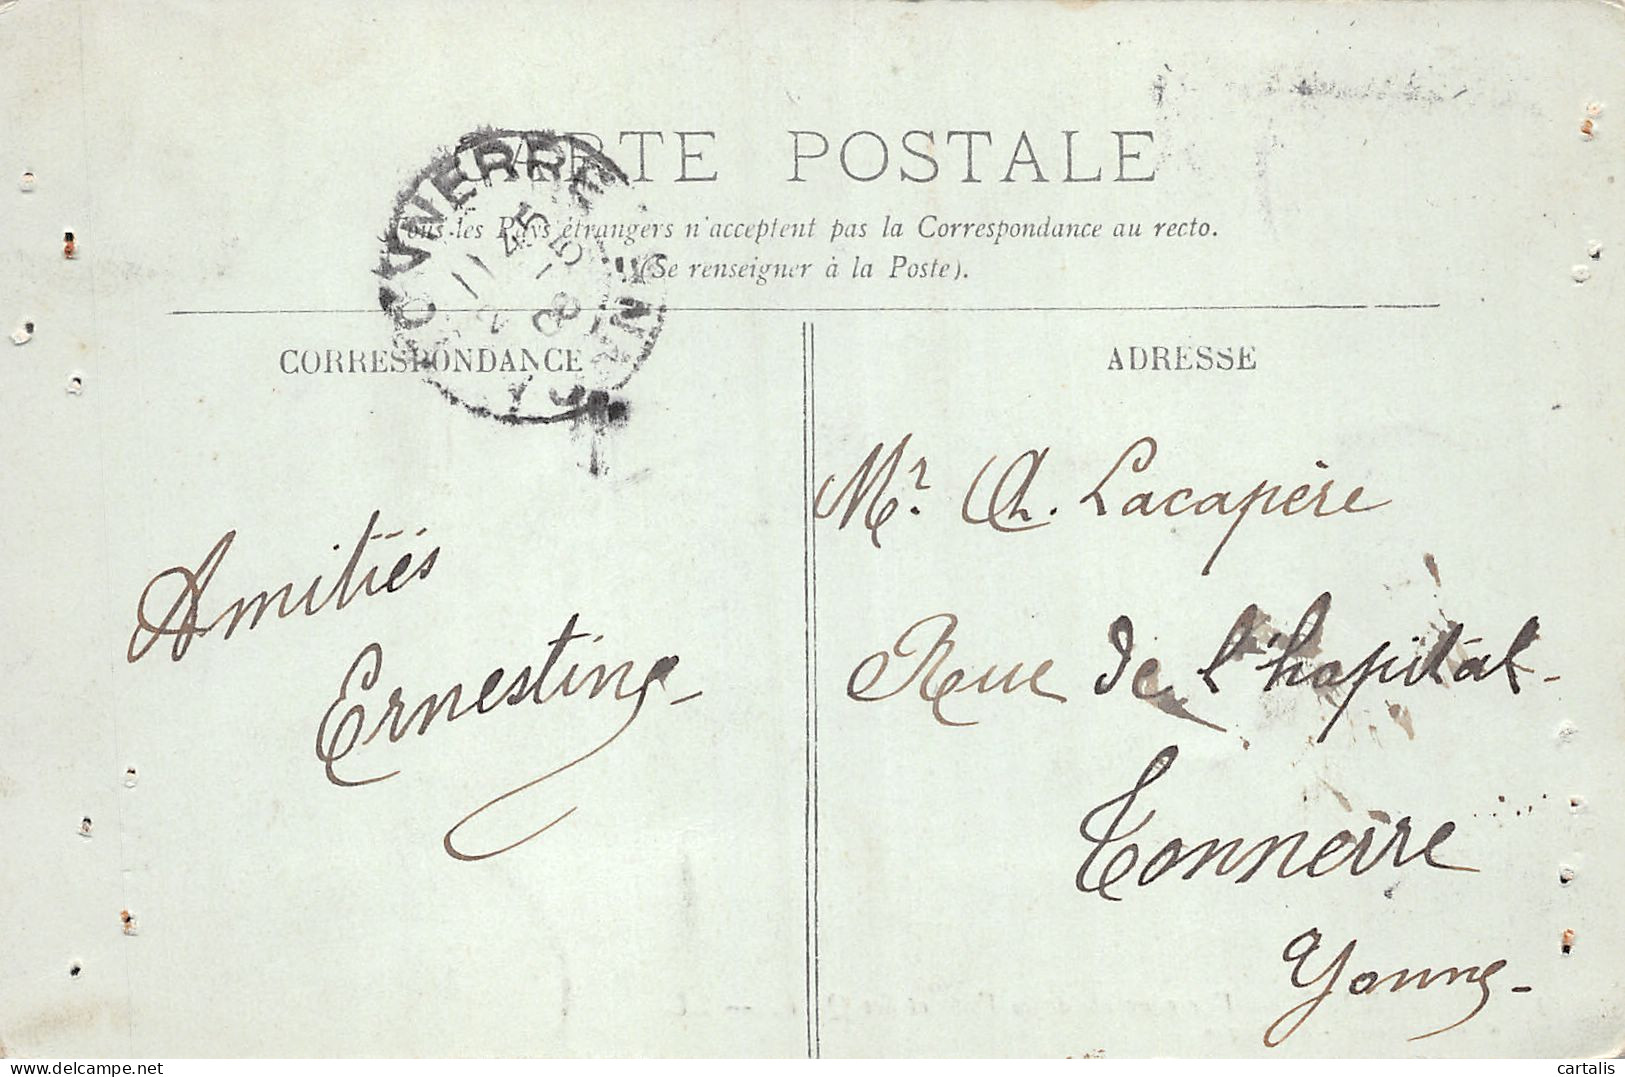 CARTE POSTALE
Tous les Pays étrangers n'acceptent pas la Correspondance au recto.
(Se renseigner à la Poste).
CORRESPONDANCE
ADRESSE
Amitiés
Ernestine
Mr. Ch. Lacapère
Rue de l'hopital
Tonnerre
Yonne
delcampe.net
cartalis